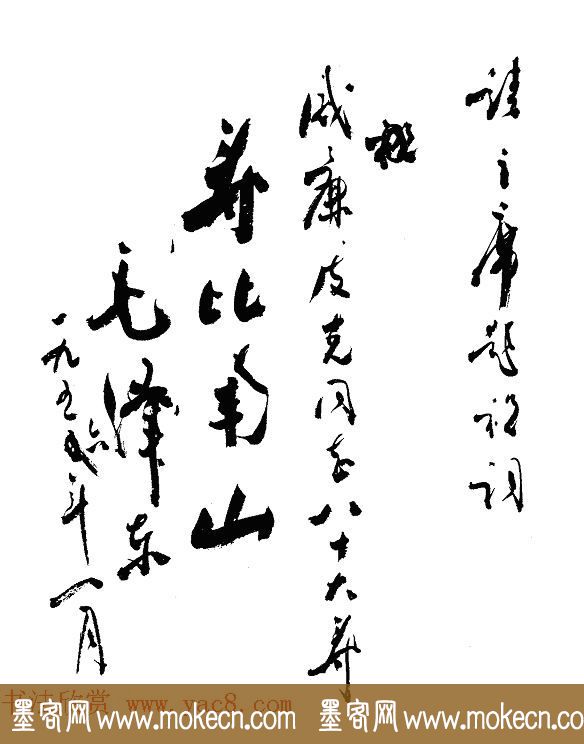 请主席题祝词
祝
威廉·皮克同志八十大寿
寿比南山
毛泽东
一九五六年一月
书法欣赏 www.yac8.com
墨客网 www.mokecn.com 墨客网 www.mokecn.com